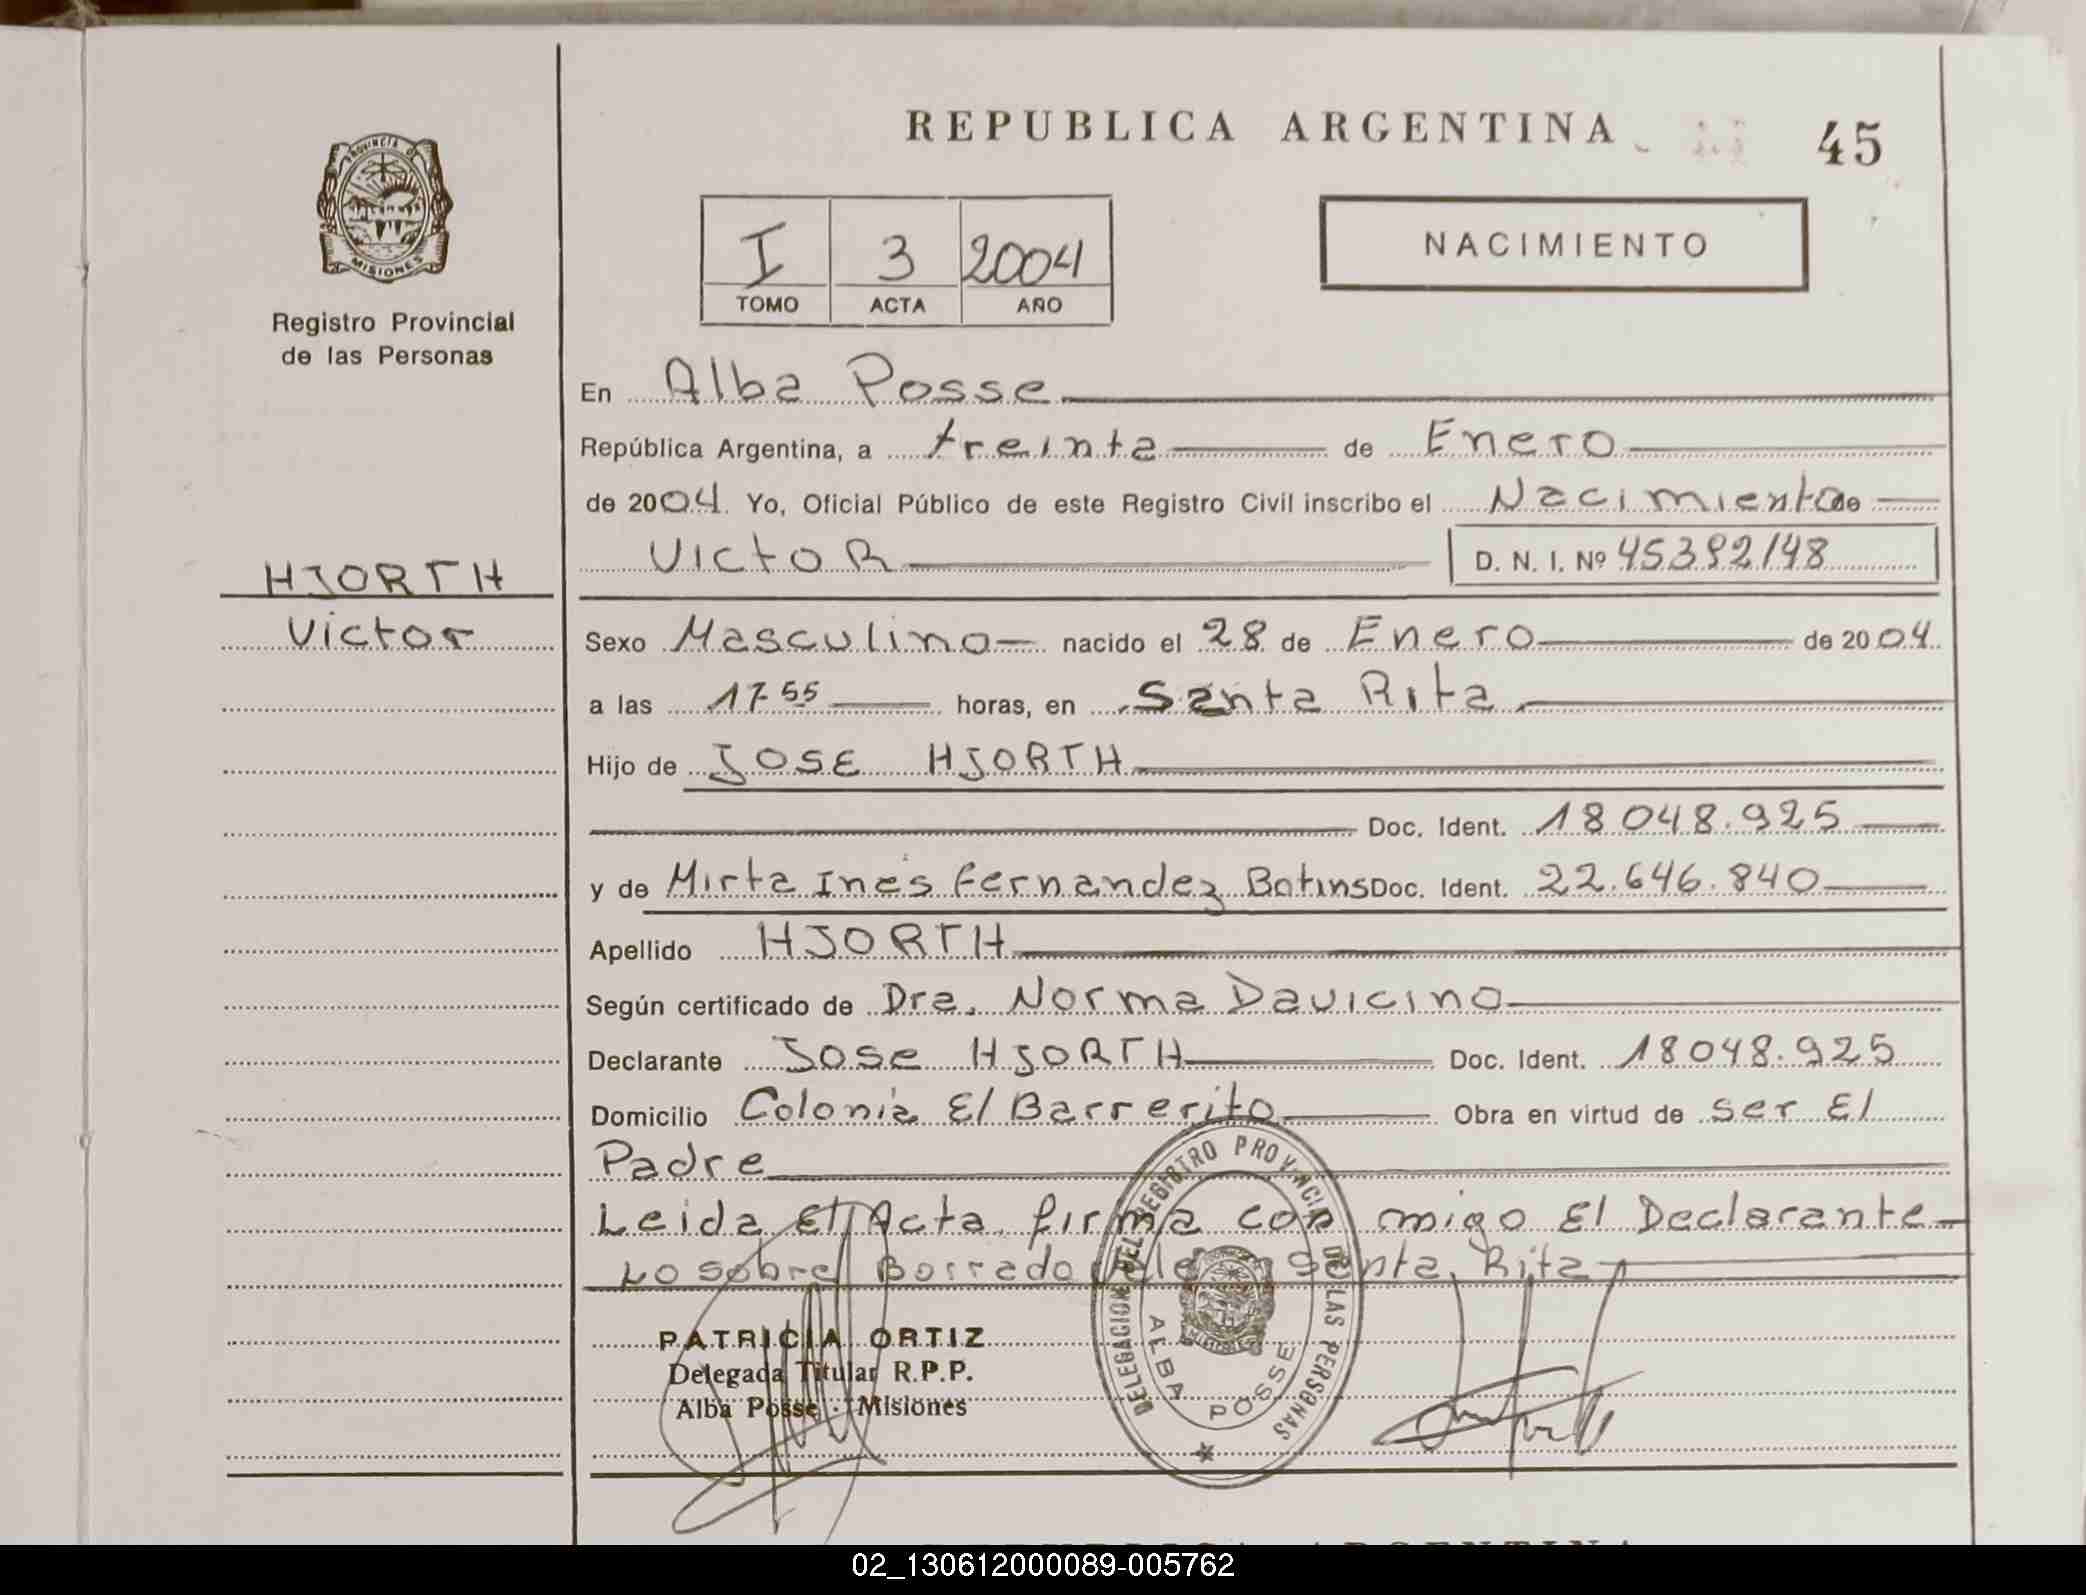 REPUBLICA ARGENTINA
45
PROVINCIA DE
MISIONES
Registro Provincial
de las Personas
I 3 2004
TOMO ACTA AÑO
NACIMIENTO
En Alba Posse
República Argentina, a treinta de Enero
de 2004. Yo, Oficial Público de este Registro Civil inscribo el Nacimiento de
Victor D. N. I. Nº 45392148
HJORTH
Victor
Sexo Masculino nacido el 28 de Enero de 2004.
a las 17 55 horas, en Santa Rita
Hijo de JOSE HJORTH
Doc. Ident. 18048.925
y de Mirta Ines Fernandez Botins Doc. Ident. 22.646.840
Apellido HJORTH
Según certificado de Dra. Norma Davicino
Declarante Jose HJORTH Doc. Ident. 18048.925
Domicilio Colonia El Barrerito Obra en virtud de ser El
Padre
Leida El Acta, firma con migo El Declarante
Lo sobre Borrado Santa Rita
DELEGACION DEL REGISTRO PROVINCIAL DE LAS PERSONAS
ALBA POSSE
PATRICIA ORTIZ
Delegada Titular R.P.P.
Alba Posse - Misiones
02_130612000089-005762